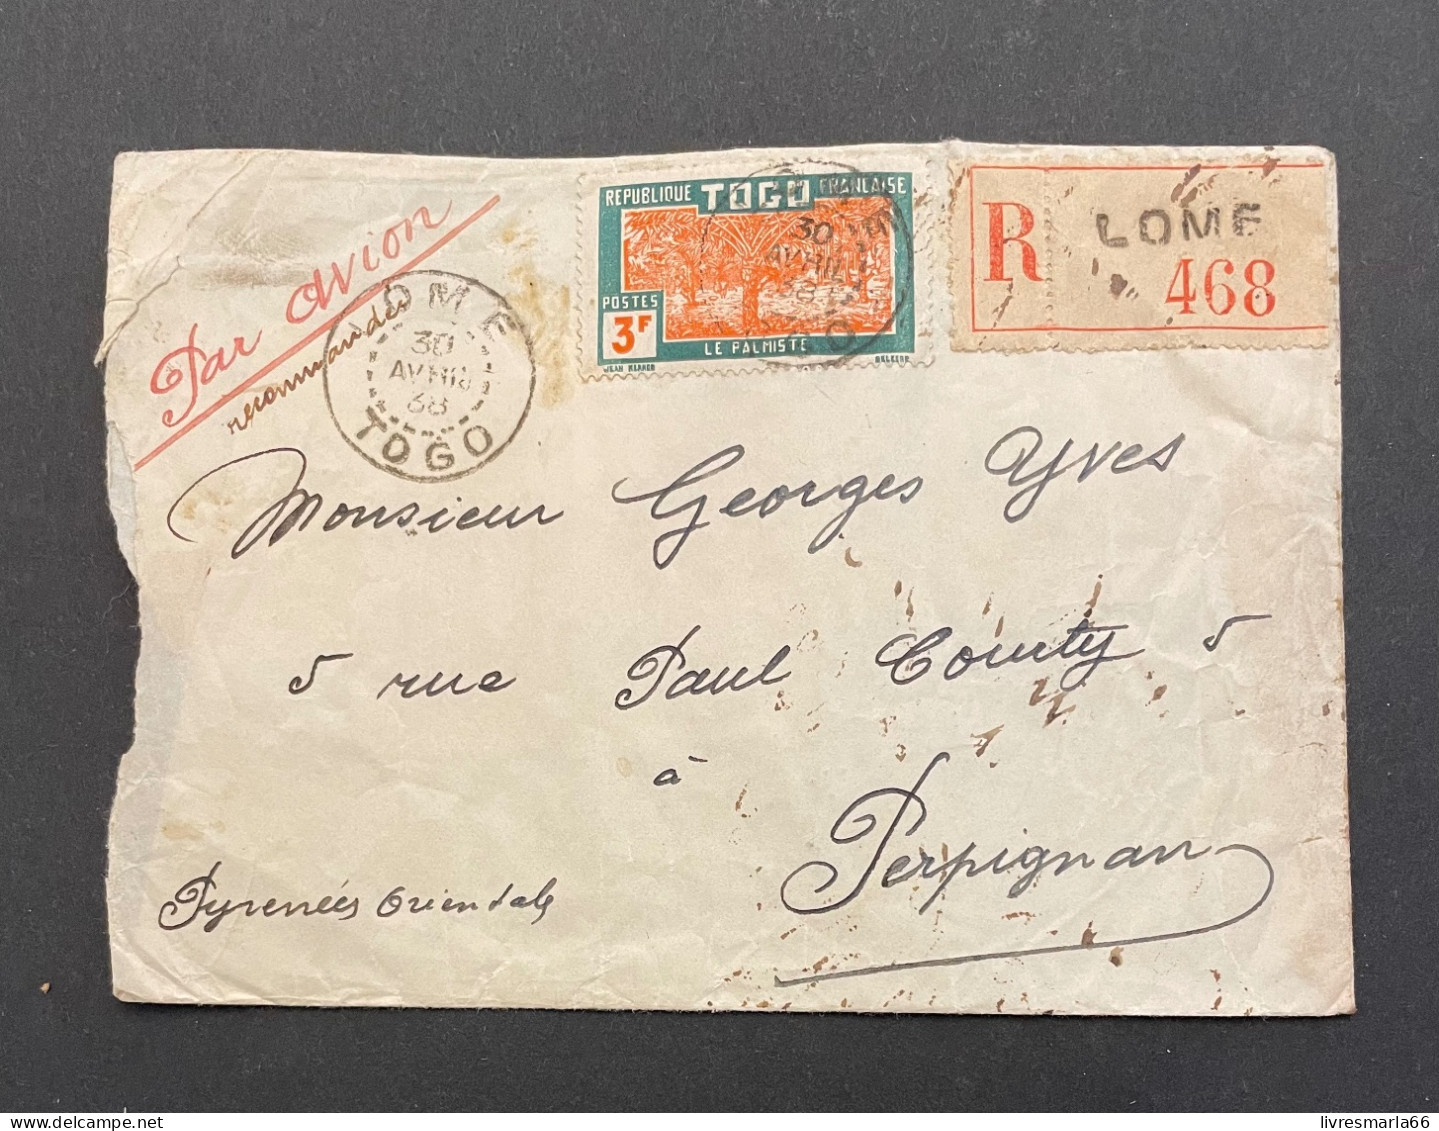 Par avion
recommandée
LOME
30
AVRIL
38
TOGO
REPUBLIQUE TOGO FRANCAISE
POSTES
3F
LE PALMISTE
JEAN KERHOR
DELZERS
30
AVRIL
38
R LOME
468
Monsieur Georges Yves
5 rue Paul Courty 5
à
Perpignan
Pyrenées Orientale
livresmarla66